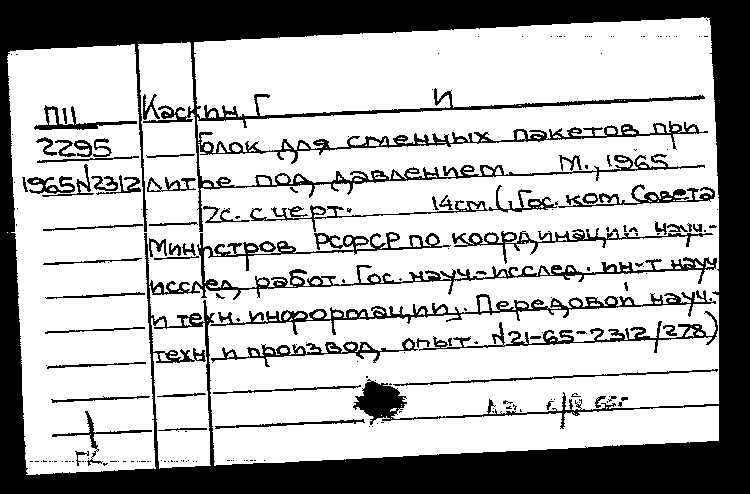 П11 Каскин, Г И
2295 Блок для сменных пакетов при
1965N2312 литье под давлением. М., 1965
7с. с черт. 14см. (Гос. ком. Совета
Министров РСФСР по координации науч.-
исслед. работ. Гос. науч.-исслед. ин-т науч
и техн. информации. Передовой науч.-
техн. и производ. опыт. N21-65-2312/278)